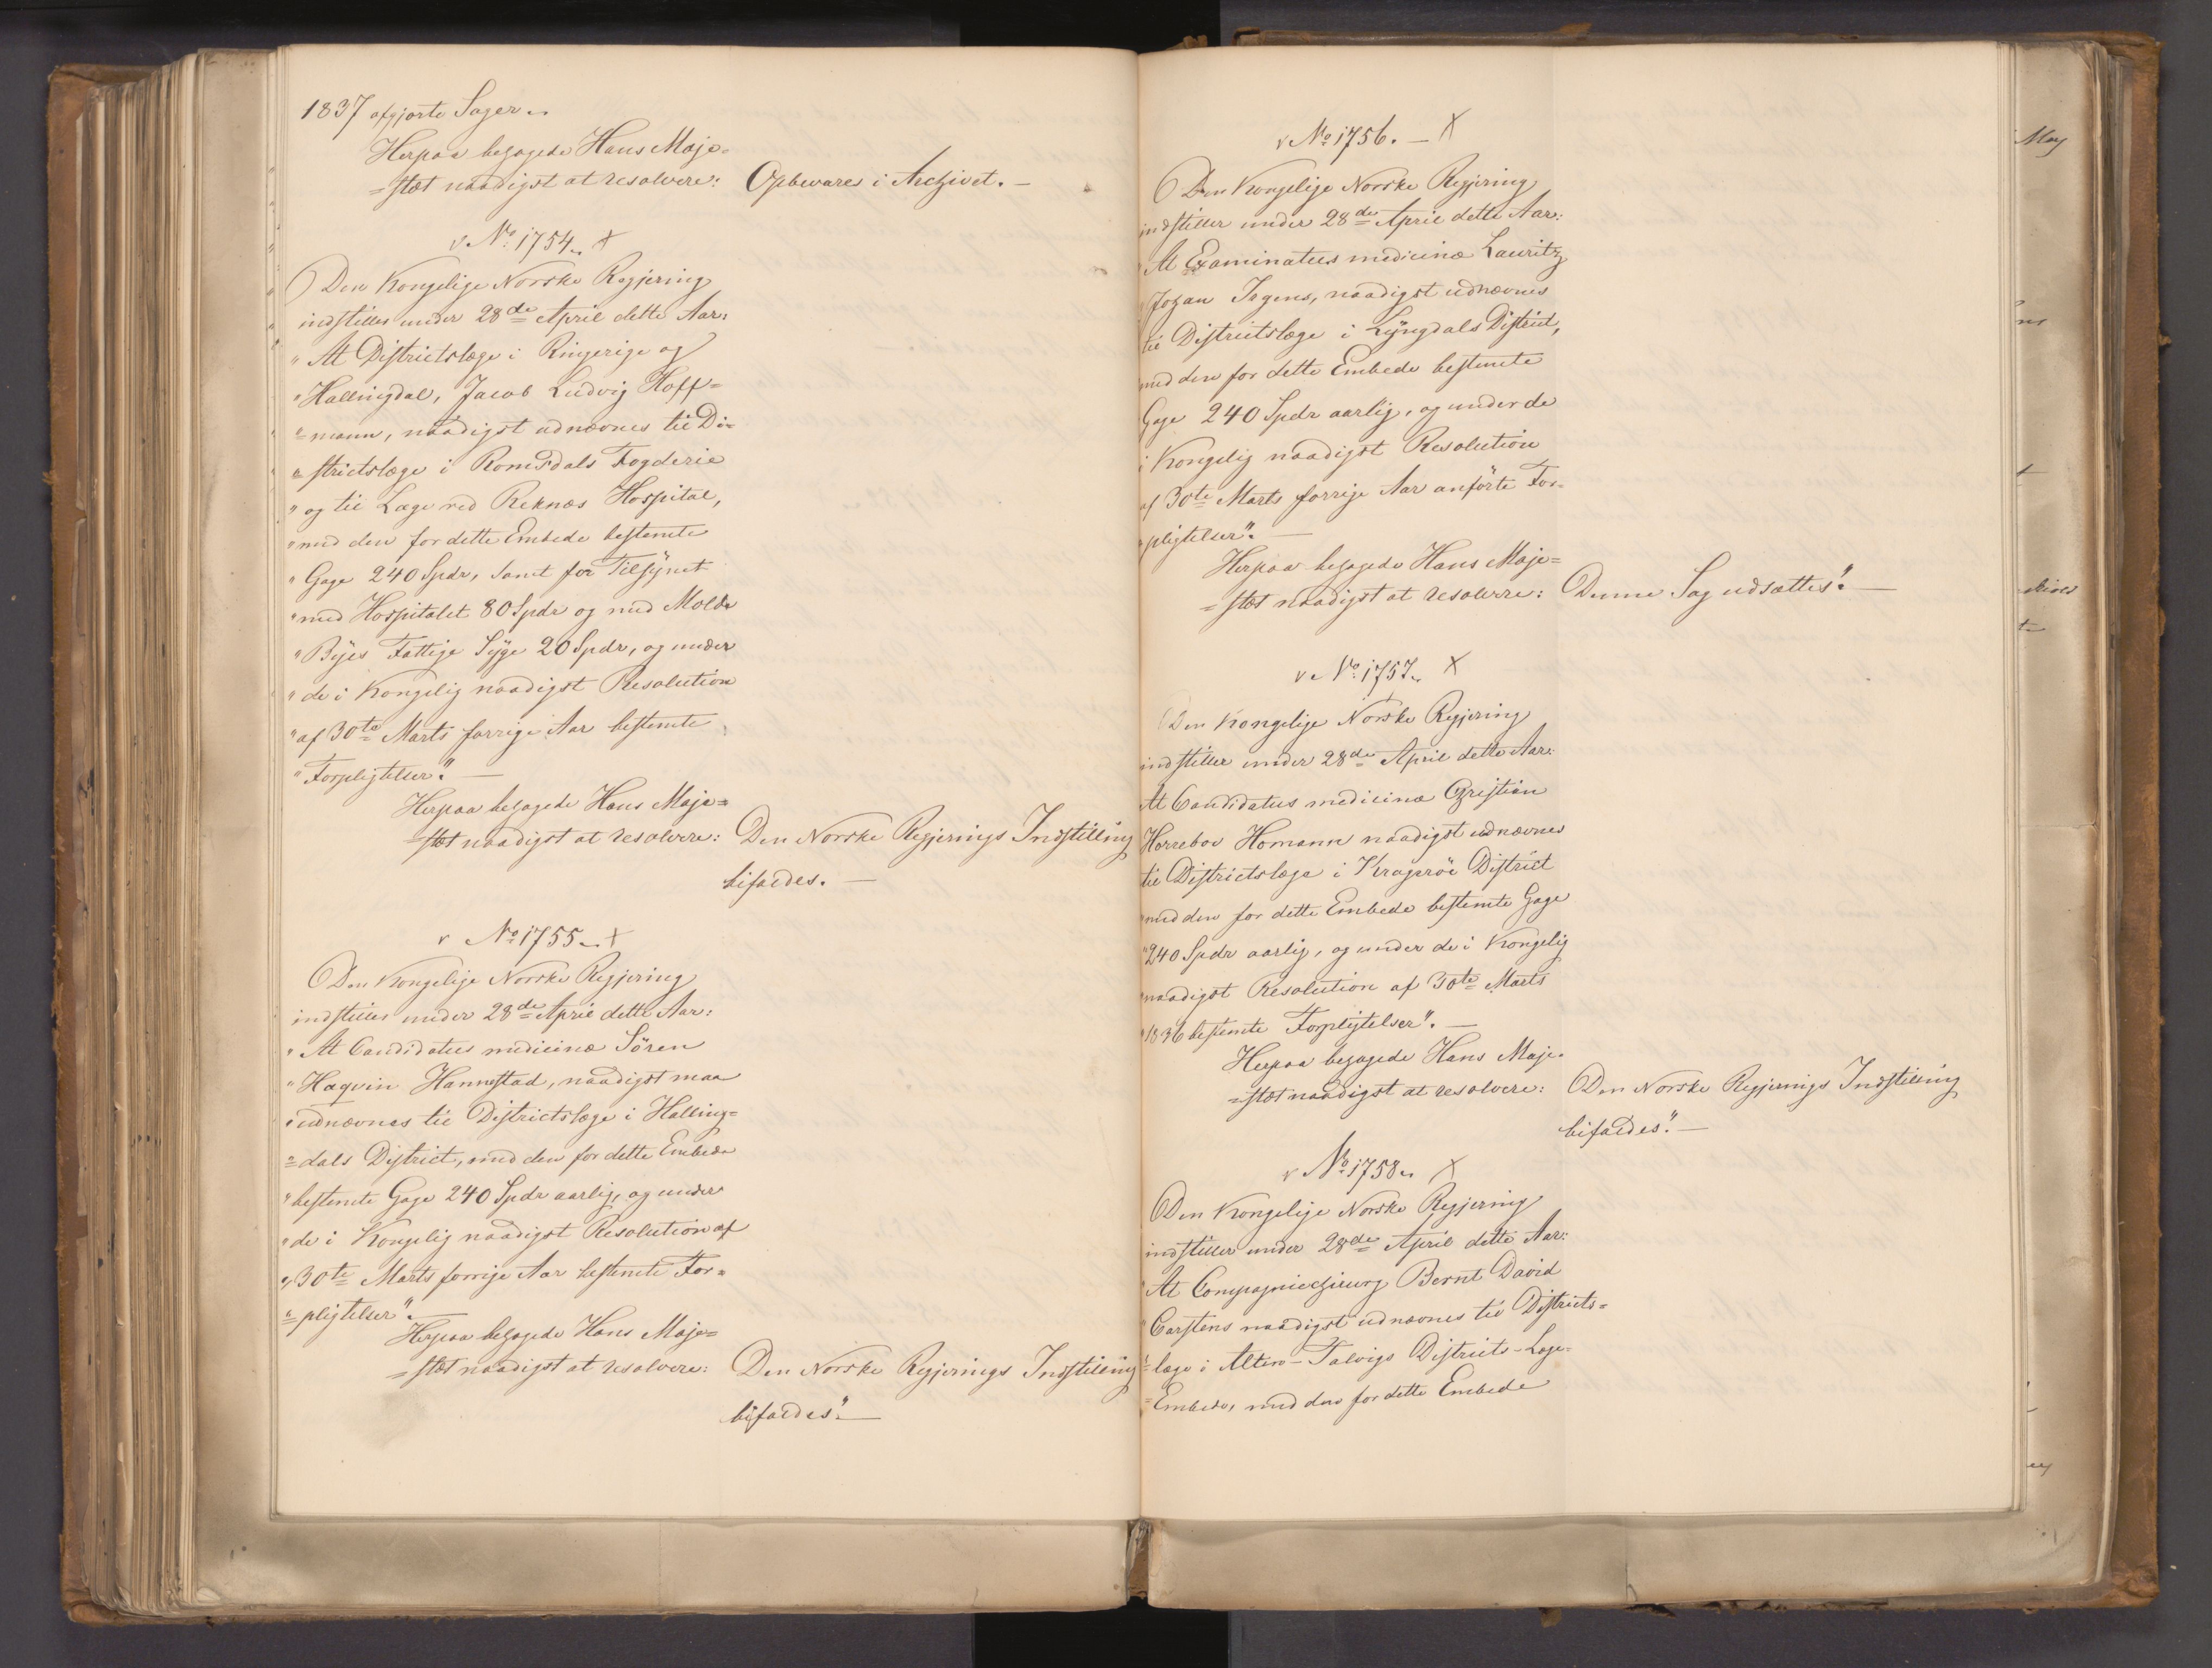 1837 afgjorte Sager.
Herpaa behagede Hans Maje=
=stæt naadigst at resolvere: Opbevares i Archivet. —
v No 1754. X
Den Kongelige Norske Regjering
indstiller under 28de April dette Aar:
"At Districtslæge i Ringerige og
"Hallingdal, Jacob Ludvig Hoff=
"=mann, naadigst udnævnes til Di=
"=strictslæge i Romsdals Fogderie
"og til Læge ved Reknæs Hospital,
"med den for dette Embede bestemte
"Gage 240 Spdr, samt for Tilsynet
"med Hospitalet 80 Spdr og med Molde
"Byes Fattige Syge 20 Spdr, og under
"de i Kongelig naadigst Resolution
"af 30te Marts forrige Aar bestemte
"Forpligtelser". —
Herpaa behagede Hans Maje=
=stæt naadigst at resolvere: Den Norske Regjerings Indstilling
bifaldes. —
v No 1755. X
Den Kongelige Norske Regjering
indstiller under 28de April dette Aar:
"At Candidatus medicinæ Sören
"Haqvin Hannestad, naadigst maa
"udnævnes til Districtslæge i Halling=
"=dals District, med den for dette Embede
"bestemte Gage 240 Spdr aarlig, og under
"de i Kongelig naadigst Resolution af
"30te Marts forrige Aar bestemte For=
"=pligtelser". —
Herpaa behagede Hans Maje=
=stæt naadigst at resolvere: Den Norske Regjerings Indstilling
bifaldes". —
v No 1756. — X
Den Kongelige Norske Regjering
indstiller under 28de April dette Aar:
"At Examinatus medicinæ Lauritz
"Johan Irgens, naadigst udnævnes
til Districtslæge i Lyngdals District,
med den for dette Embede bestemte
Gage 240 Spdr aarlig, og under de
i Kongelig naadigst Resolution
af 30te Marts forrige Aar anförte For=
"pligtelser". —
Herpaa behagede Hans Maje=
=stæt naadigst at resolvere: Denne Sag udsættes". —
v No 1757. X
Den Kongelige Norske Regjering
indstiller under 28de April dette Aar:
At Candidatus medicinæ Christian
Horrebov Homann naadigst udnævnes
til Districtslæge i Krageröe District
"med den for dette Embede bestemte Gage
"240 Spdr aarlig, og under de i Kongelig
"naadigst Resolution af 30te Marts
"1836 bestemte Forpligtelser". —
Herpaa behagede Hans Maje=
=stæt naadigst at resolvere: Den Norske Regjerings Indstilling
bifaldes". —
v No 1758. X
Den Kongelige Norske Regjering
indstiller under 28de April dette Aar:
"At Compagniechirurg Bernt David
"Carstens naadigst udnævnes til Districts=
"=læge i Alten-Talvigs Districts-Læge=
"=Embede, med den for dette Embede